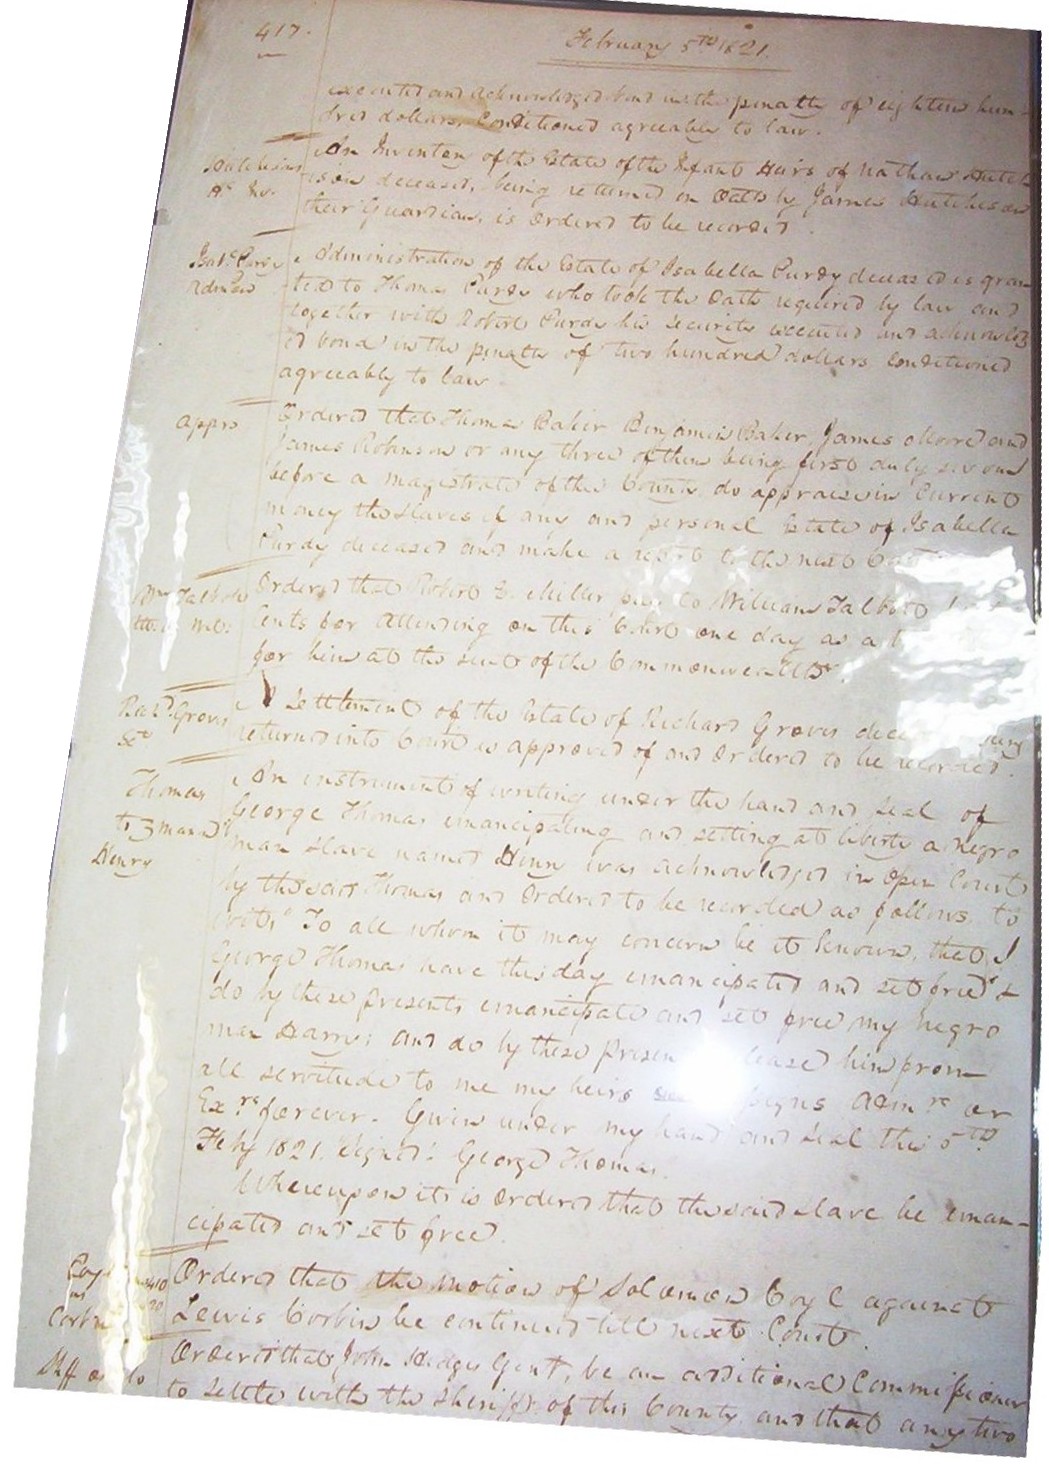 417.
February 5TH 1821.
executed and acknowledged bond in the penalty of eighteen hun-
dred dollars, Conditioned agreeable to law.
Hutchison
An Inventory of the Estate of the Infant Heirs of Nathan Hutch
ison deceased, being returned on Oath by James Hutchison
their Guardian, is Ordered to be recorded.
Isab. Purdy
Admon
Administration of the Estate of Isabella Purdy deceased is gran-
ted to Thomas Purdy who took the Oath required by law and
together with Robert Purdy his security executed and acknowledg
ed bond in the penalty of two hundred dollars Conditioned
agreeably to law.
Apprs
Ordered that Thomas Baker Benjamin Baker, James Moore and
James Robinson or any three of them being first duly sworn
before a magistrate of this County do appraise in Current
money the slaves if any and personal Estate of Isabella
Purdy deceased and make a report to the next
Wm Talbott
Ordered that Robert Miller pay to William Talbott
Cents for attending on this Court one day as a
for him at the suit of the Commonwealth.
Richd. Groves
A Settlement of the Estate of Richard Groves
returned into Court is approved of and Ordered to be recorded.
Thomas
to } manu
Henry
An instrument of writing under the hand and seal of
George Thomas emancipating and setting at liberty a negro
man slave named Henry was acknowledged in Open Court
by the said Thomas and Ordered to be recorded as follows to
wit, "To all whom it may concern be it known, that I
George Thomas have this day emancipated and set free &
do by these presents emancipate and set free my negro
man Harry; and do by these him from
all servitude to me my heirs Admrs or
Exrs forever. Given under my hand and seal this 5TH
Feby 1821. Signed. George Thomas.
Whereupon it is Ordered that the said slave be eman-
cipated and set free.
Coyl
vs
Ordered that the motion of Solomon Coyl against
Lewis Corbin be continued till next Court.
Ordered that John Hedges Gent, be an additional Commissioner
to settle with the Sheriff of this County, and that any two